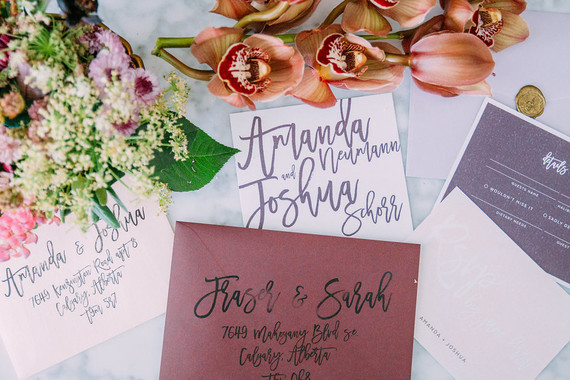 Amanda
Neumann
and
Joshua
Schorr
details
GUESTS NAME
WOULDN'T MISS IT
SADLY
DIETARY NEEDS
Amanda & Joshua
7649 Kensington Road apt 8
Calgary, Alberta
Fraser & Sarah
7649 Mahogany Blvd se
Calgary, Alberta
AMANDA + JOSHUA